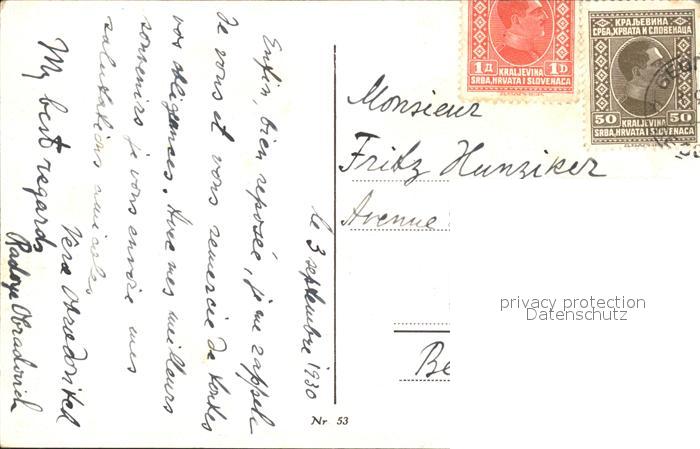 le 3 septembre 1930
Enfin, bien reposée, je me rappele
de vous et vous remercie de toutes
vos éligances. Avec mes meilleurs
souvenirs je vous envoie mes
salutations amicales
Vera
My best regards
Radoye Obradovich
Nr 53
1 Д 1 D
KRALJEVINA
SRBA, HRVATA I SLOVENACA
КРАЉЕВИНА
СРБА, ХРВАТА И СЛОВЕНАЦА
50 50
KRALJEVINA
SRBA, HRVATA I SLOVENACA
Monsieur
Fritz Hunziker
Avenue
Be
privacy protection
Datenschutz